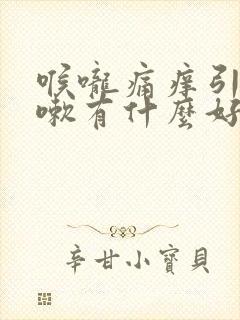 喉嚨痛痒引
嗽有什麼好
辛甘小寶貝